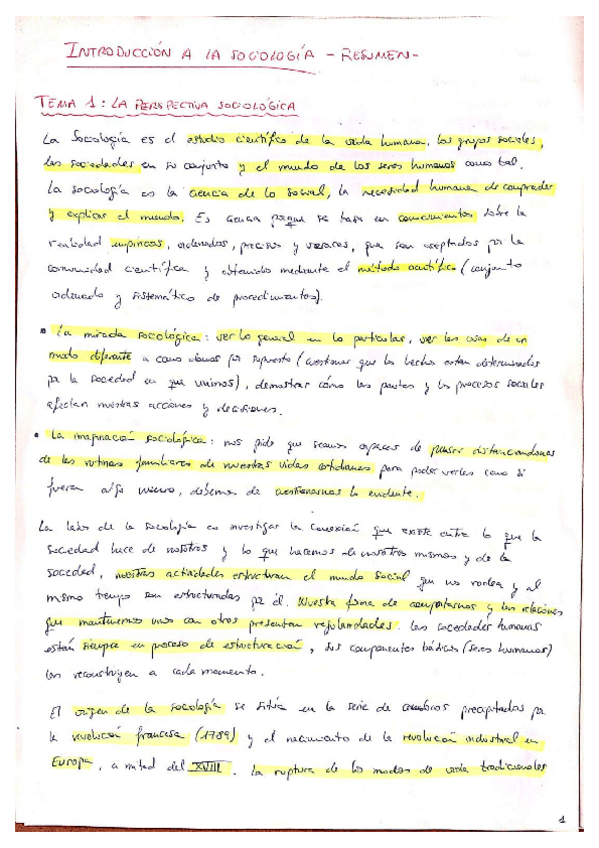 INTRODUCCIÓN A LA SOCIOLOGÍA - RESUMEN -
TEMA 1: LA PERSPECTIVA SOCIOLÓGICA
La Sociología es el estudio científico de la vida humana, los grupos sociales,
las sociedades en su conjunto y el mundo de los seres humanos como tal.
La sociología es la ciencia de lo social, la necesidad humana de comprender
y explicar el mundo. Es ciencia porque se basa en conocimientos sobre la
realidad empíricos, ordenados, precisos y veraces, que son aceptados por la
comunidad científica y obtenidos mediante el método científico (conjunto
ordenado y sistemático de procedimientos).
• La mirada sociológica: ver lo general en lo particular, ver las cosas de un
modo diferente a como damos por supuesto (cuestionar que los hechos están determinados
por la sociedad en que vivimos), demostrar cómo las pautas y los procesos sociales
afectan nuestras acciones y decisiones.
• La imaginación sociológica: nos pide que seamos capaces de pensar distanciándonos
de las rutinas familiares de nuestras vidas cotidianas para poder verlas como si
fueran algo nuevo, debemos de cuestionarnos lo evidente.
La labor de la sociología es investigar la conexión que existe entre lo que la
sociedad hace de nosotros y lo que hacemos de nosotros mismos y de la
sociedad, nuestras actividades estructuran el mundo social que nos rodea y al
mismo tiempo son estructuradas por él. Nuestra forma de comportarnos y las relaciones
que mantenemos unos con otros presentan regularidades. Las sociedades humanas
están siempre en proceso de estructuración, sus componentes básicos (seres humanos)
las reconstruyen a cada momento.
El origen de la sociología se sitúa en la serie de cambios precipitados por
la revolución francesa (1789) y el nacimiento de la revolución industrial en
Europa, a mitad del XVIII. La ruptura de los modos de vida tradicionales
1